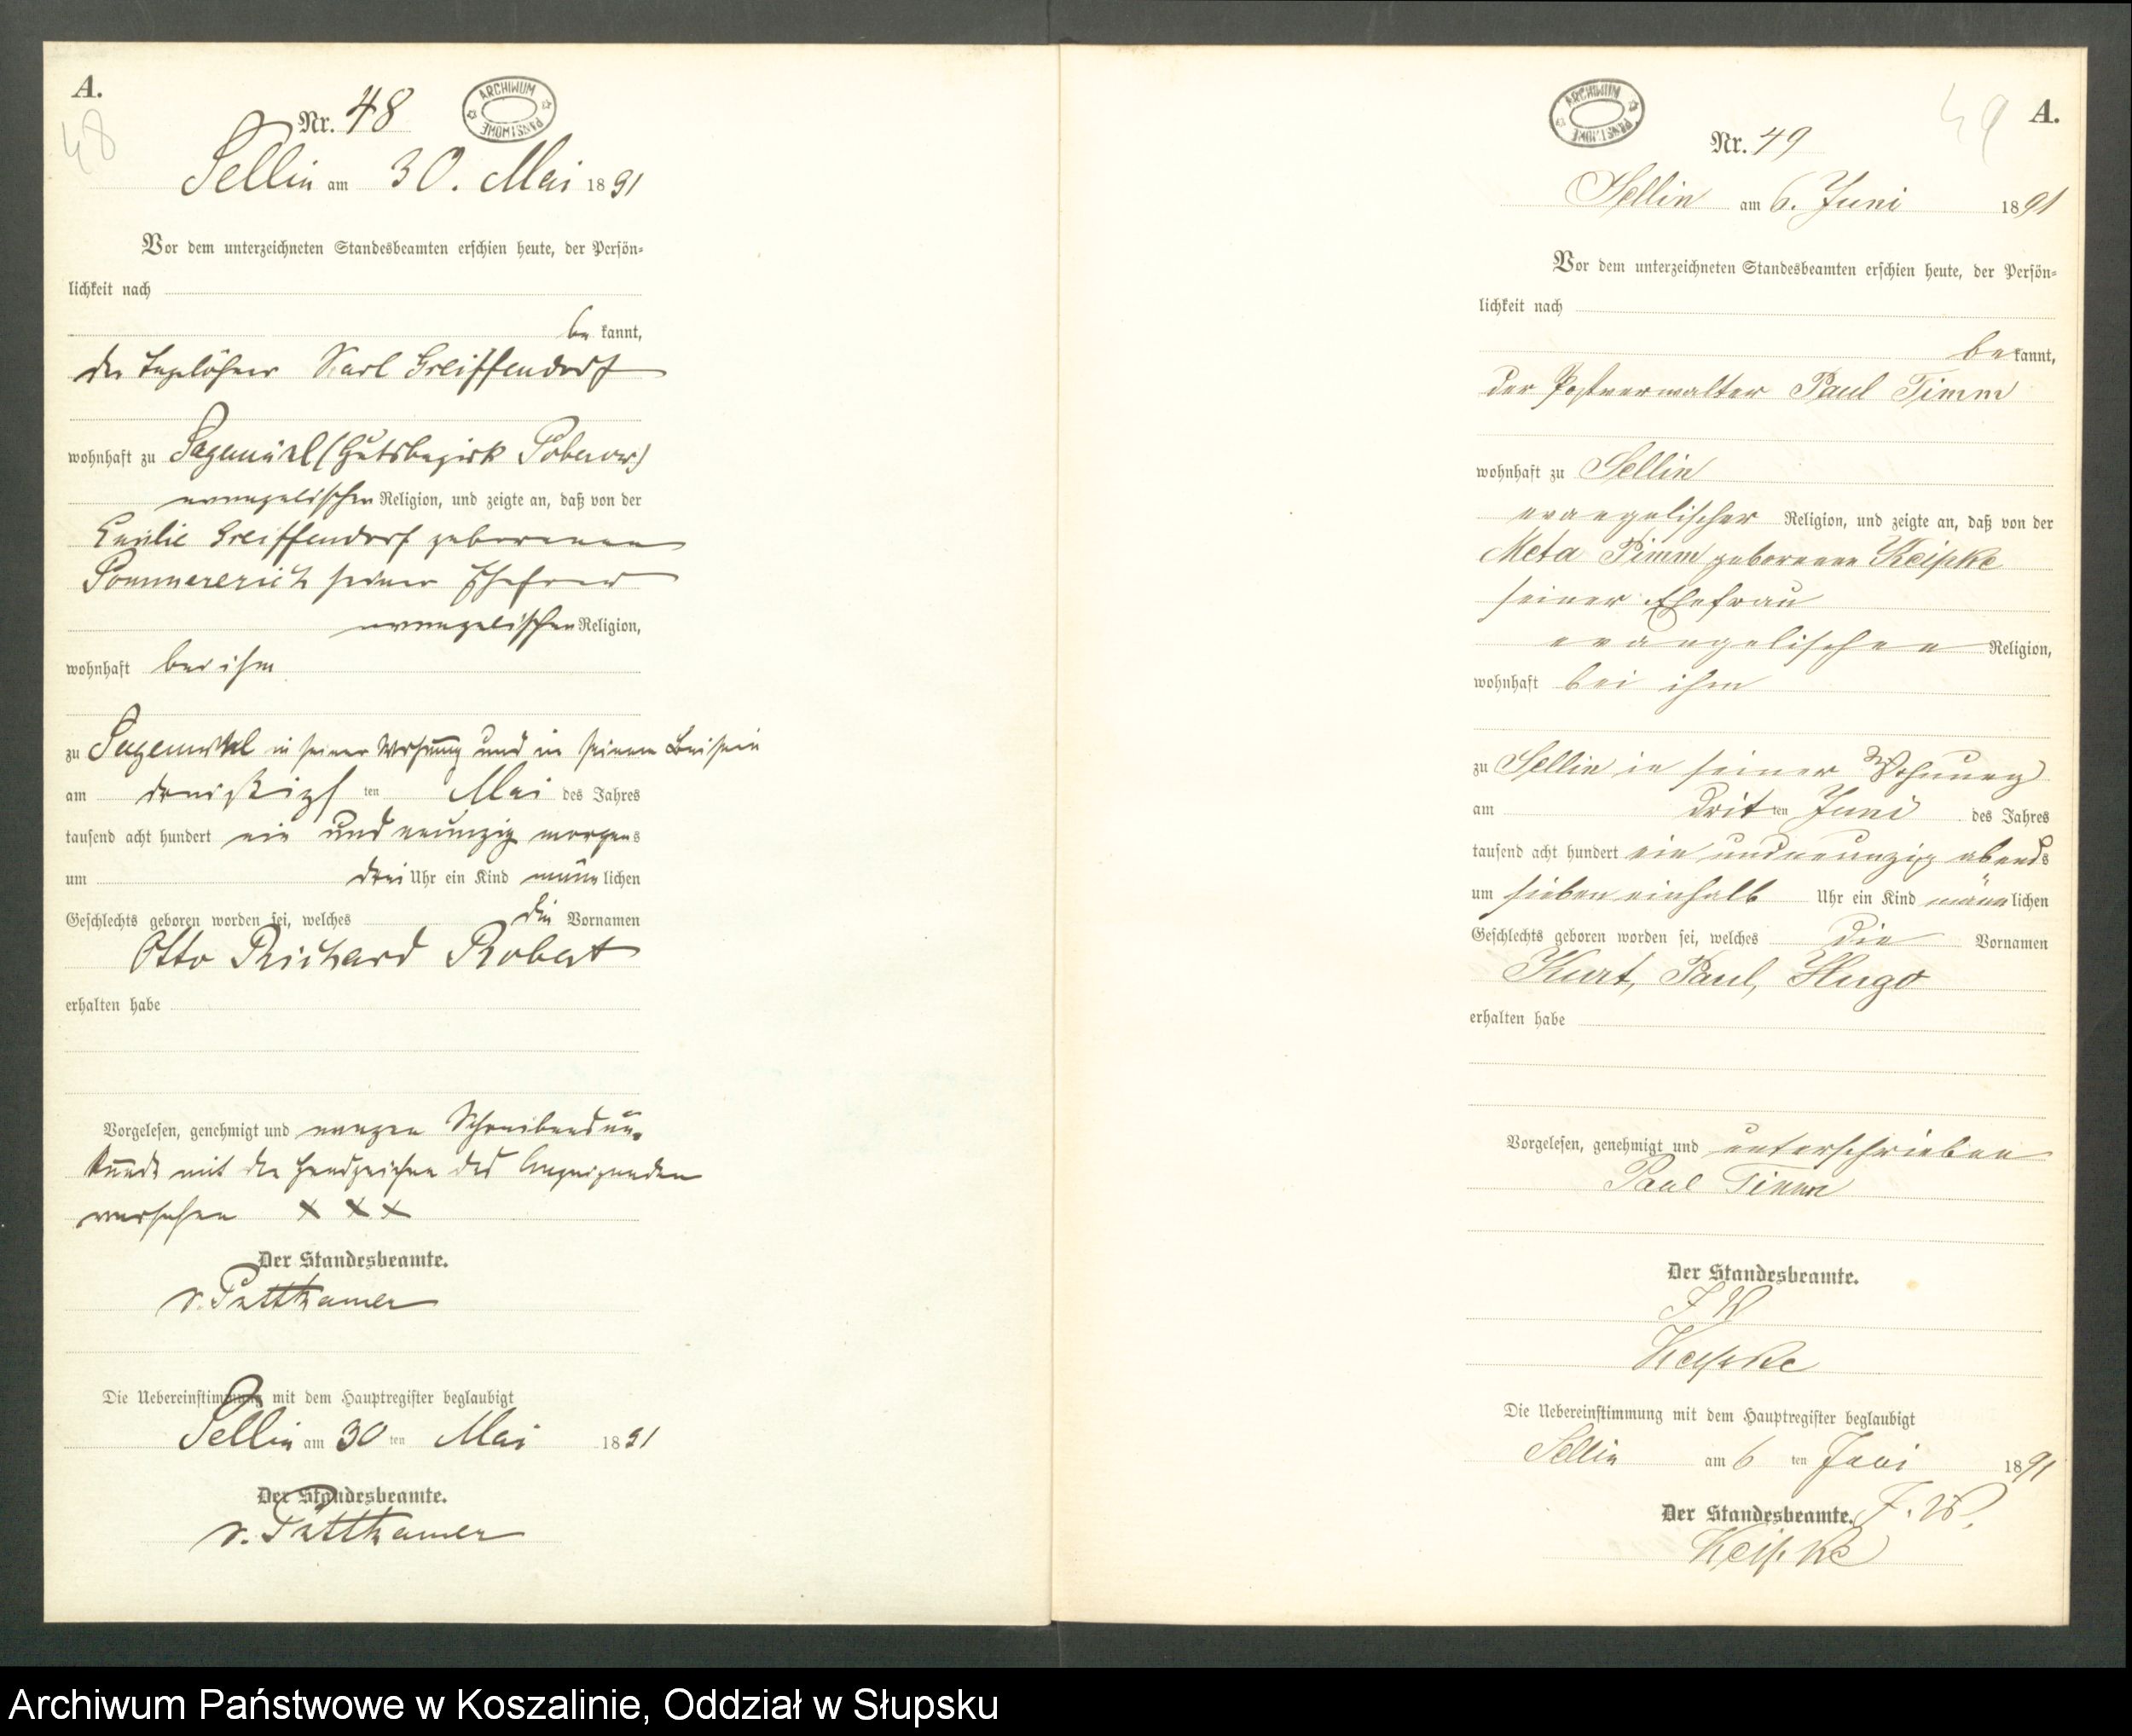 A.
48
Nr. 48
ARCHIWUM PAŃSTWOWE
Sellin am 30. Mai 1891
Vor dem unterzeichneten Standesbeamten erschien heute, der Persön-
lichkeit nach
be kannt,
der Tagelöhner Karl Greiffendorf
wohnhaft zu (Gutsbezirk Poberow)
evangelischer Religion, und zeigte an, daß von der
Emilie Greiffendorf geborenen
seiner Ehefrau
evangelischer Religion,
wohnhaft bei ihm
zu in seiner Wohnung und in seinem Beisein
am dreißigsten Mai des Jahres
tausend acht hundert ein und neunzig morgens
um drei Uhr ein Kind männlichen
Geschlechts geboren worden sei, welches die Vornamen
Otto Richard Robert
erhalten habe
Vorgelesen, genehmigt und wegen Schreibensun-
kunde mit den Handzeichen des Anzeigenden
versehen X X X
Der Standesbeamte.
v. Puttkamer
Die Uebereinstimmung mit dem Hauptregister beglaubigt
Sellin am 30 ten Mai 1891
Der Standesbeamte.
v. Puttkamer
49
A.
ARCHIWUM PAŃSTWOWE
Nr. 49
Sellin am 6. Juni 1891
Vor dem unterzeichneten Standesbeamten erschien heute, der Persön-
lichkeit nach
be kannt,
der Postverwalter Paul Timm
wohnhaft zu Sellin
evangelischer Religion, und zeigte an, daß von der
Meta Timm geborenen Keipke
seiner Ehefrau
evangelischen Religion,
wohnhaft bei ihm
zu Sellin in seiner Wohnung
am dritten Juni des Jahres
tausend acht hundert ein und neunzig abends
um sieben einhalb Uhr ein Kind männlichen
Geschlechts geboren worden sei, welches die Vornamen
Kurt, Paul, Hugo
erhalten habe
Vorgelesen, genehmigt und unterschrieben
Paul Timm
Der Standesbeamte.
J. V.
Keipke
Die Uebereinstimmung mit dem Hauptregister beglaubigt
Sellin am 6 ten Juni 1891
Der Standesbeamte. J. V.
Keipke
Archiwum Państwowe w Koszalinie, Oddział w Słupsku